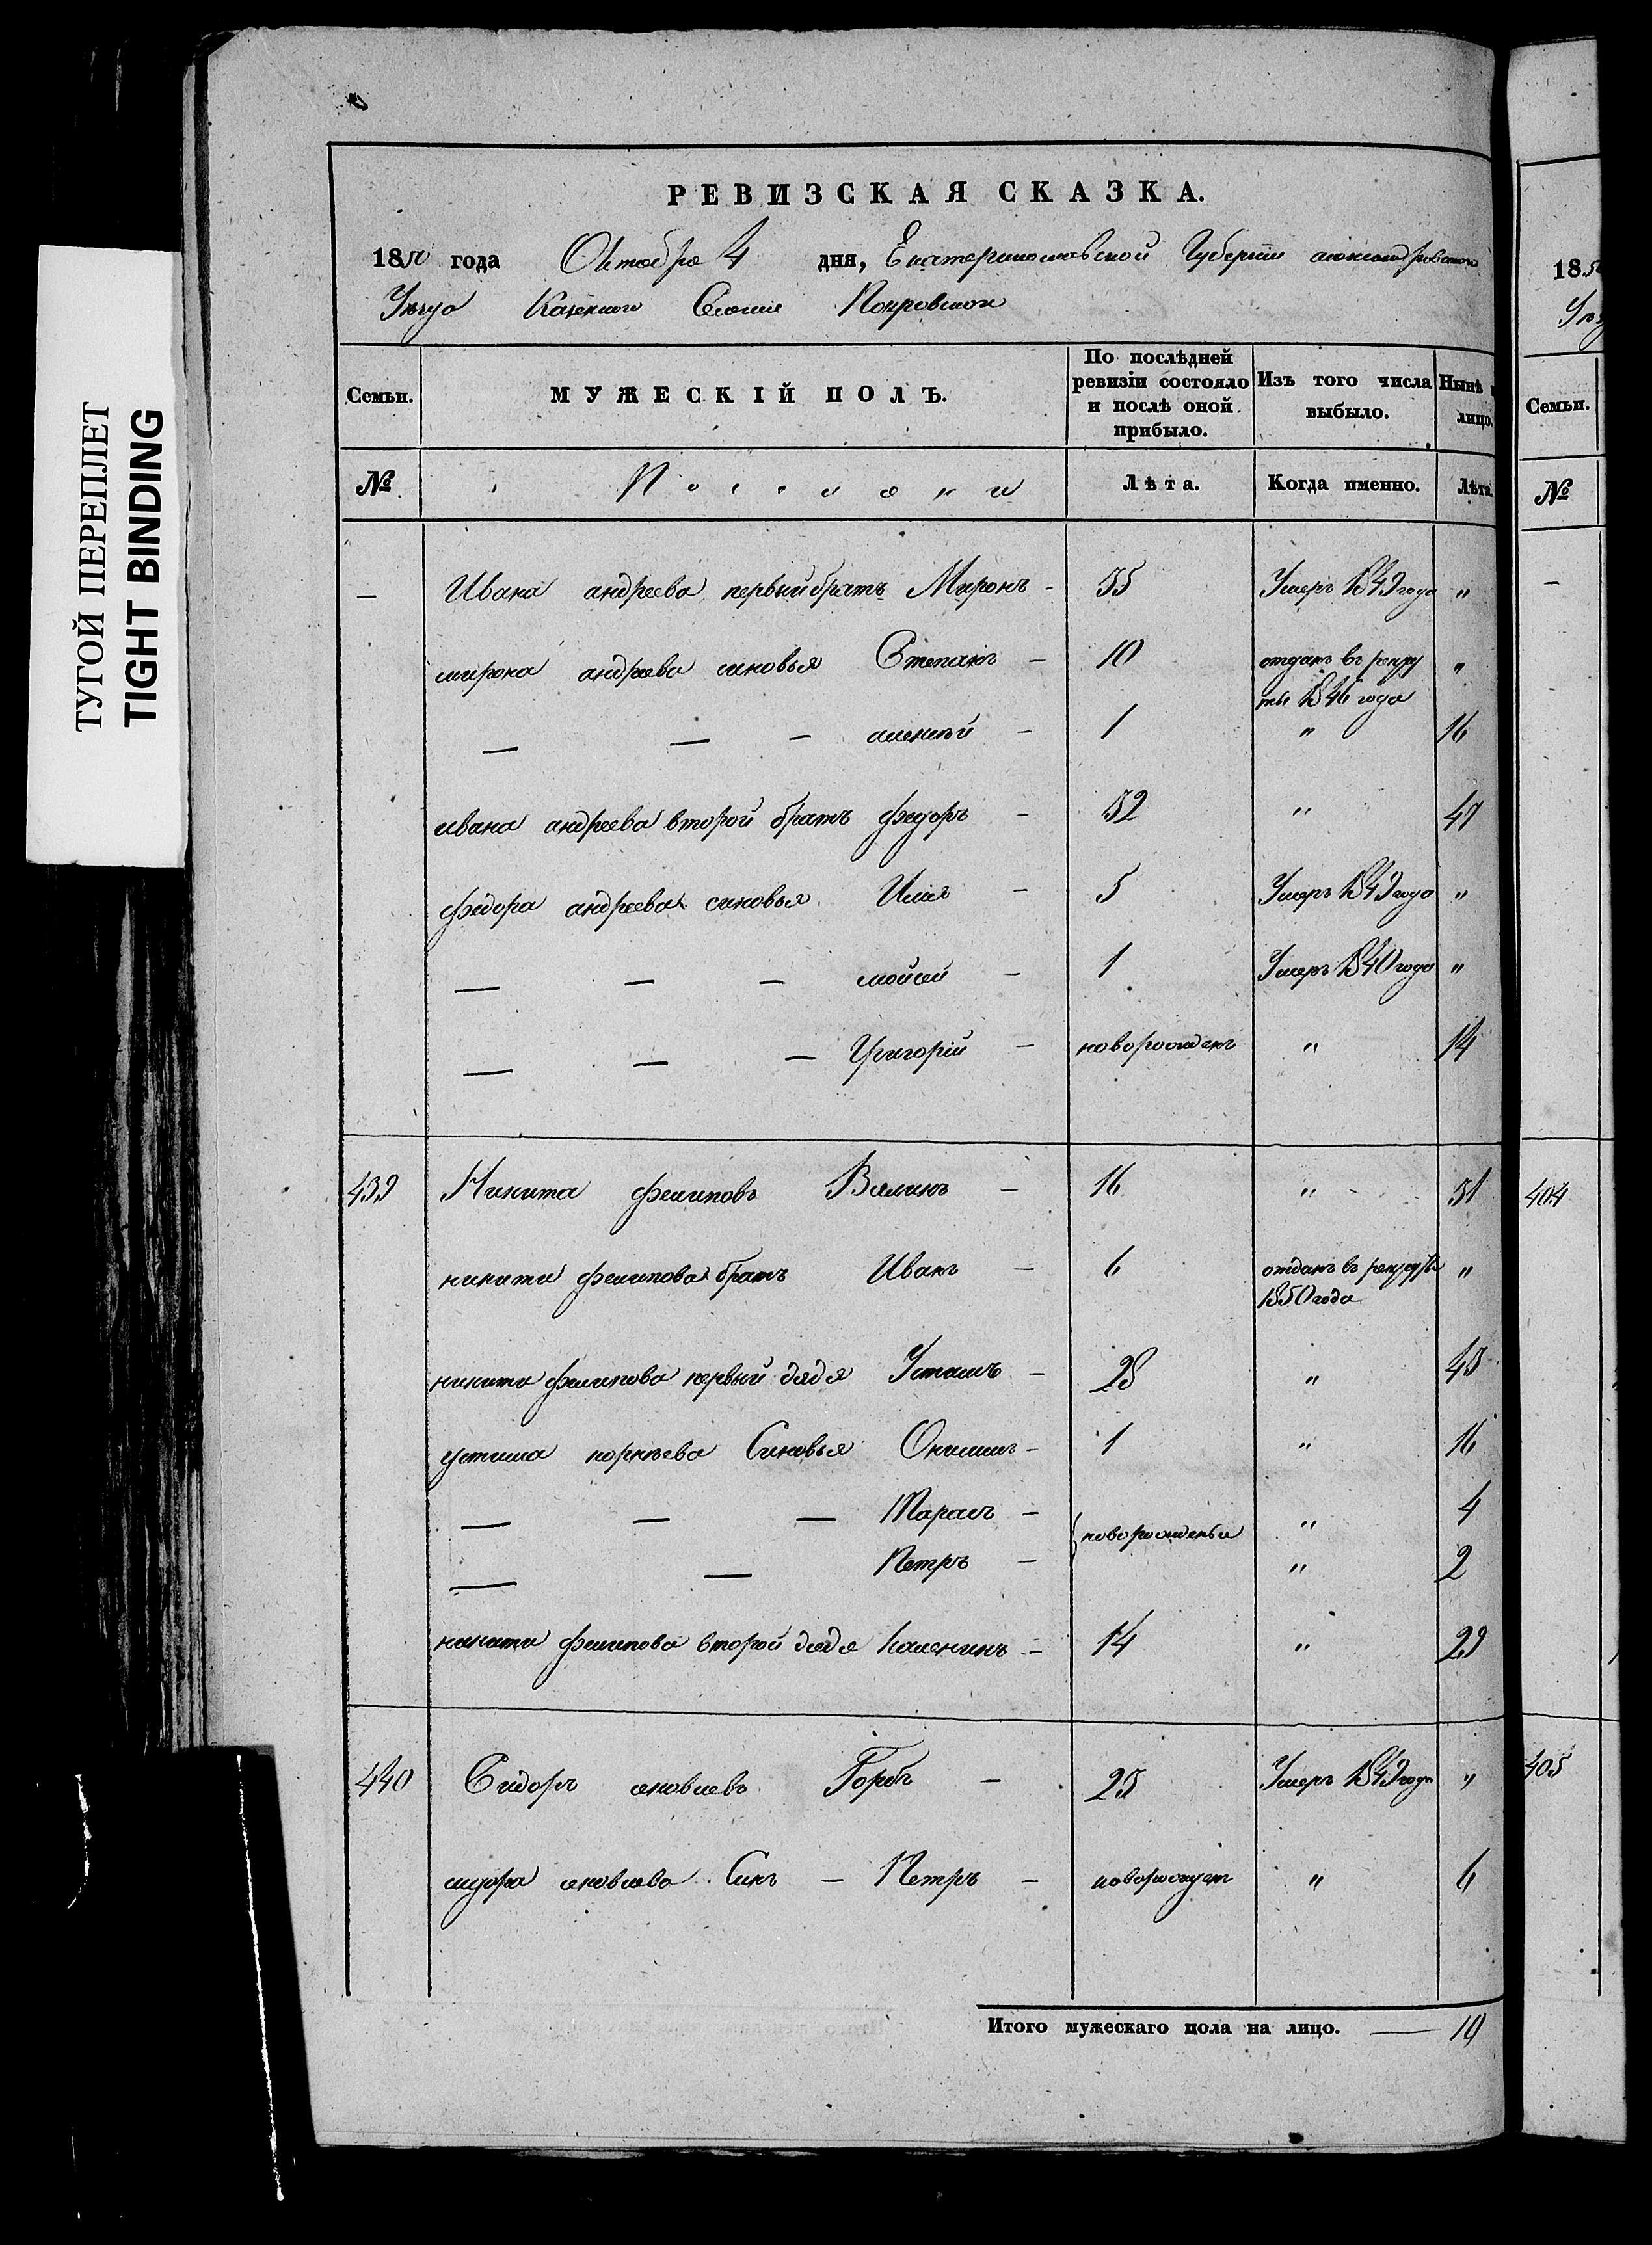 ТУГОЙ ПЕРЕПЛЕТ
TIGHT BINDING
РЕВИЗСКАЯ СКАЗКА.
1850 года Октября 4 дня, Екатеринославской Губерніи александровскаго
Уѣзда Казенного Селенія Покровскаго
Семьи.
МУЖЕСКІЙ ПОЛЪ.
По послѣдней ревизіи состояло и послѣ оной прибыло.
Изъ того числа выбыло.
Нынѣ
лицо.
№
Лѣта.
Когда именно.
Лѣта.
— Ивана андреева первый братъ Миронъ — 55 Умеръ 1849 года "
мирона андреева сыновья Степанъ — 10 отданъ въ рекру
ты 1846 года "
— — — алексѣй — 1 " 16
ивана андреева второй братъ федоръ — 32 " 47
федора андреева сыновья Илья — 5 Умеръ 1849 года "
— — — мойсей — 1 Умеръ 1840 года "
— — — Григорій — новорожденъ " 14
439 Никита филиповъ — 16 " 31
никиты филипова братъ Иванъ — 6 отданъ въ рекруты "
1850 года
никиты филипова первый дядя Устимъ — 28 " 43
устима корнѣева Сыновья Онисимъ — 1 " 16
— — — Тарасъ — " 4
новорожденые
— — Петръ — " 2
никиты филипова второй дядя каленикъ — 14 " 29
440 Сидоръ яковлевъ Горбъ — 25 Умеръ 1849 года "
сидора яковлева Сынъ — Петръ — новорожденъ " 6
Итого мужескаго пола на лицо. — 10
185
Уѣз
Семьи.
№
—
404
405